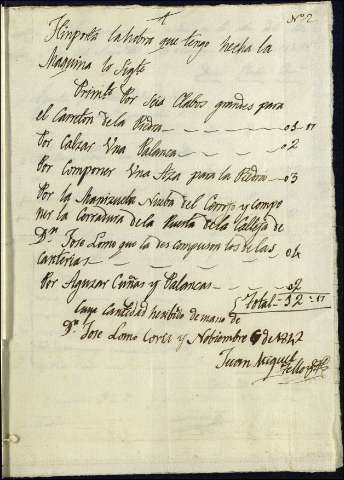 Nº 2
Ymporta la hobra que tengo hecha la
Maquina lo Sigte
Primte Por Seis Clabos grandes para
el Carreton de la Piedra 01 rr
Por Calzar Una Palanca 02
Por Componer Una Aza para la Piedra 03
Por la Manizuela Nueba del Corro y Compo
ner la Corradura de la Puerta de la Calleja de
Dn Jose Lomo que la descompuson los de las
Canterias 04
Por Aguzar Cuñas y Palancas 02
Total = 12 = rr
Cuya Cantidad he rbido de mano de
Dn Jose Lomo y Nobiembre 6 de 1842
Juan Miguel
Tello